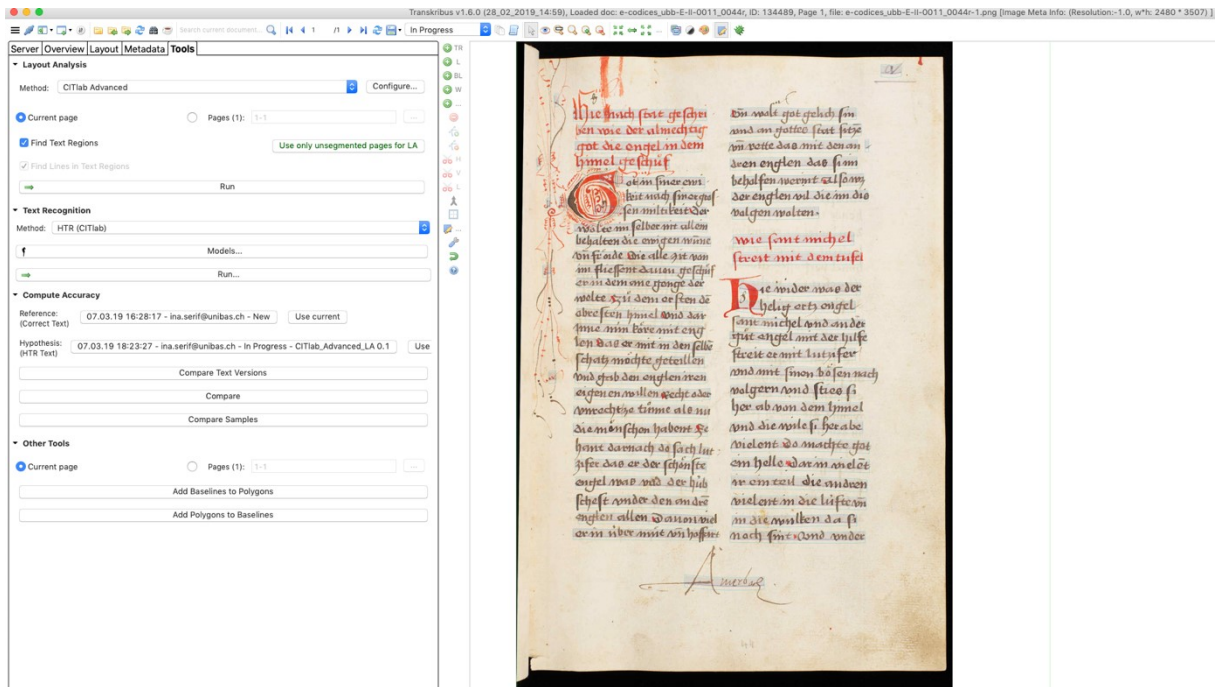 Transkribus v1.6.0 (28_02_2019_14:59), Loaded doc: e-codices_ubb-E-II-0011_0044r, ID: 134489, Page 1, file: e-codices_ubb-E-II-0011_0044r-1.png [Image Meta Info: (Resolution:-1.0, w*h: 2480 * 3507) ]
Search current document... 1 /1 In Progress
Server Overview Layout Metadata Tools
Layout Analysis
Method: CITlab Advanced Configure...
Current page Pages (1): 1-1 ...
Find Text Regions Use only unsegmented pages for LA
Find Lines in Text Regions
Run
Text Recognition
Method: HTR (CITlab)
Models...
Run...
Compute Accuracy
Reference: (Correct Text) 07.03.19 16:28:17 - ina.serif@unibas.ch - New Use current
Hypothesis: (HTR Text) 07.03.19 18:23:27 - ina.serif@unibas.ch - In Progress - CITlab_Advanced_LA 0.1 Use
Compare Text Versions
Compare
Compare Samples
Other Tools
Current page Pages (1): 1-1 ...
Add Baselines to Polygons
Add Polygons to Baselines
TR
L
BL
W
...
H
V
L
...
Hie nach stat geschri
ben wie der almechtig
got die engel in dem
himel geschuf
Got in siner ewi
keit nach siner gros
sen miltikeit Der
wolte im selber nit allem
behalten die ewigen
die alle
im fliessent dauon geschuf
er in dem ane gonge der
welte zü dem ersten de
obresten himel vnd dar
inne nün köre mit eng
len Das er mit in den selbe
schatz möchte geteillen
vnd gab den englen iren
eigenen willen Recht oder
vnrecht ze tünne als nu
die mönschen habent
hant darnach do sach luc
zifer das er der schönste
engel was vnd der hüb
schest vnder den andrē
englen allen Dauon viel
er in über müt vn̄ hoffart
vn̄ wolt got gelich sin
vnd an gottes stat sitzē
vn̄ rette das mit den an
dren englen das si im
behulfen also
der englen vil die im do
volgen wolten.
wie sant michel
streit mit dem tüfel
Hie wider was der
helig ertz engel
sant michel vnd ander
güt engel mit der hilfe
streit er mit lucifer
vnd mit sinen bösen nach
volgern vnd sties si
her ab von dem himel
vnd die wile si her abe
vielent Do machte got
ein helle Dar in vielet
ir ein teil die andren
vielent in die lüfte vn̄
in die wulken da si
noch sint. vnd vnder
Amerbac
44